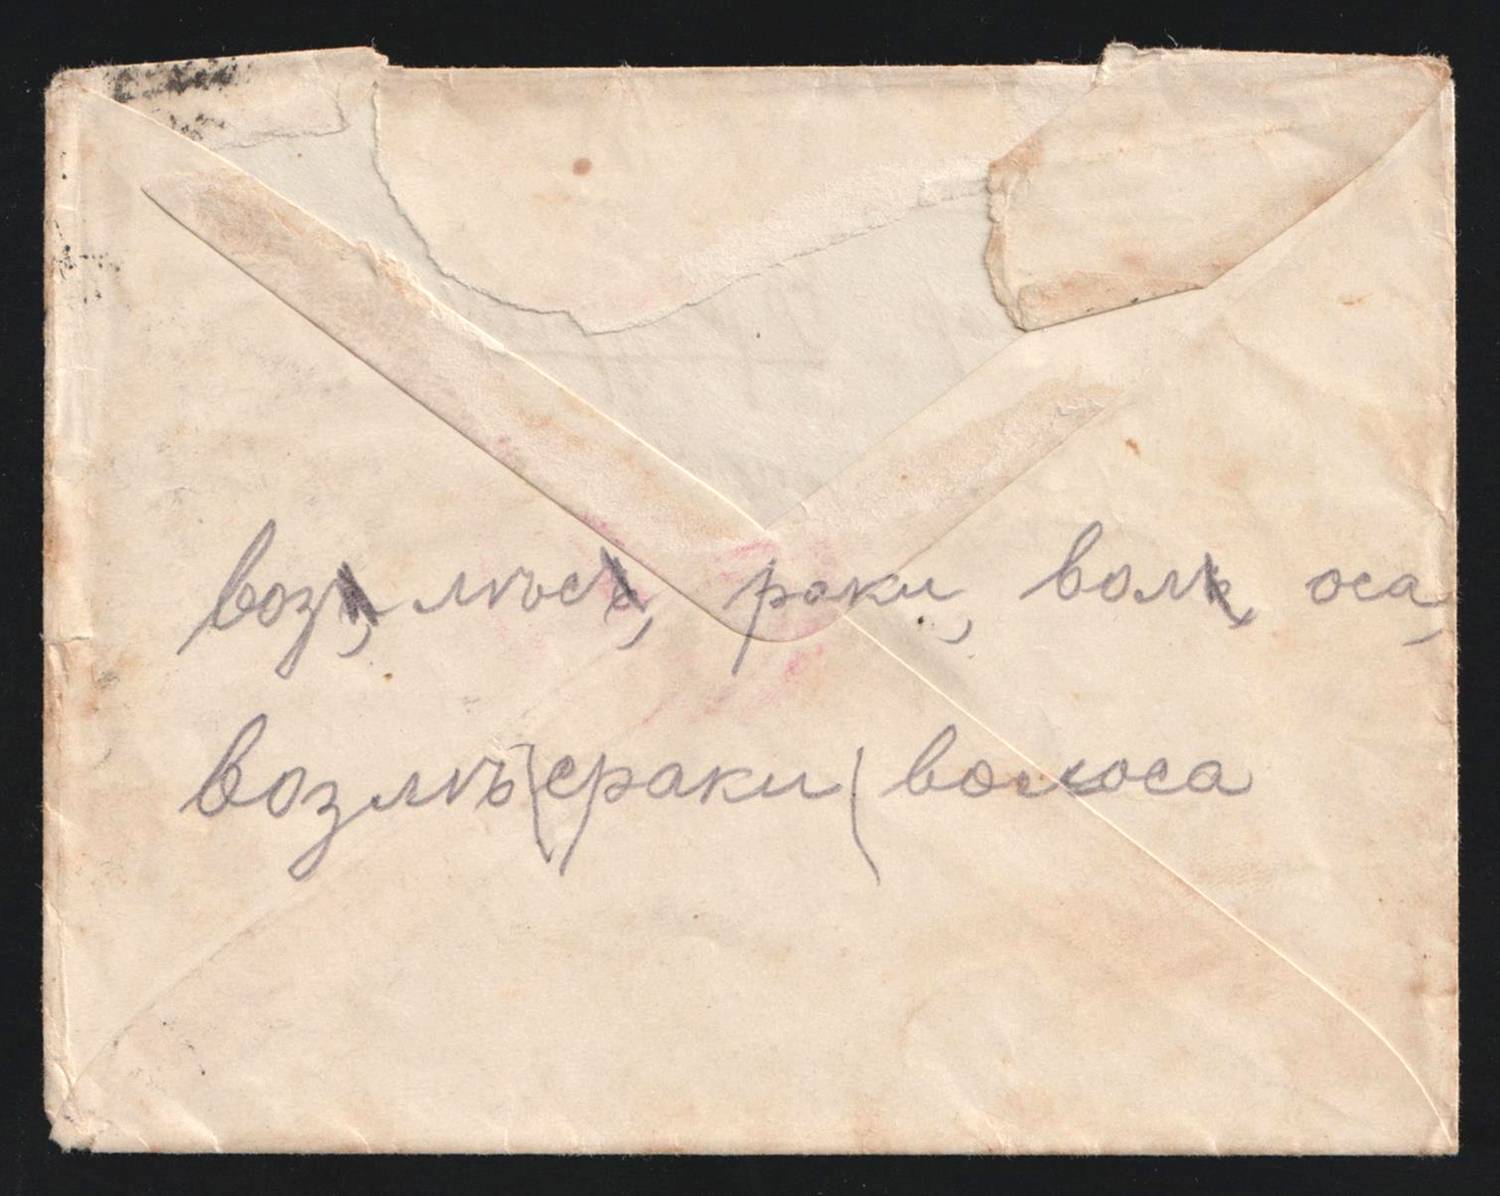 возъ, лѣсъ, раки, волъ, оса,
возлѣ(сраки(волоса